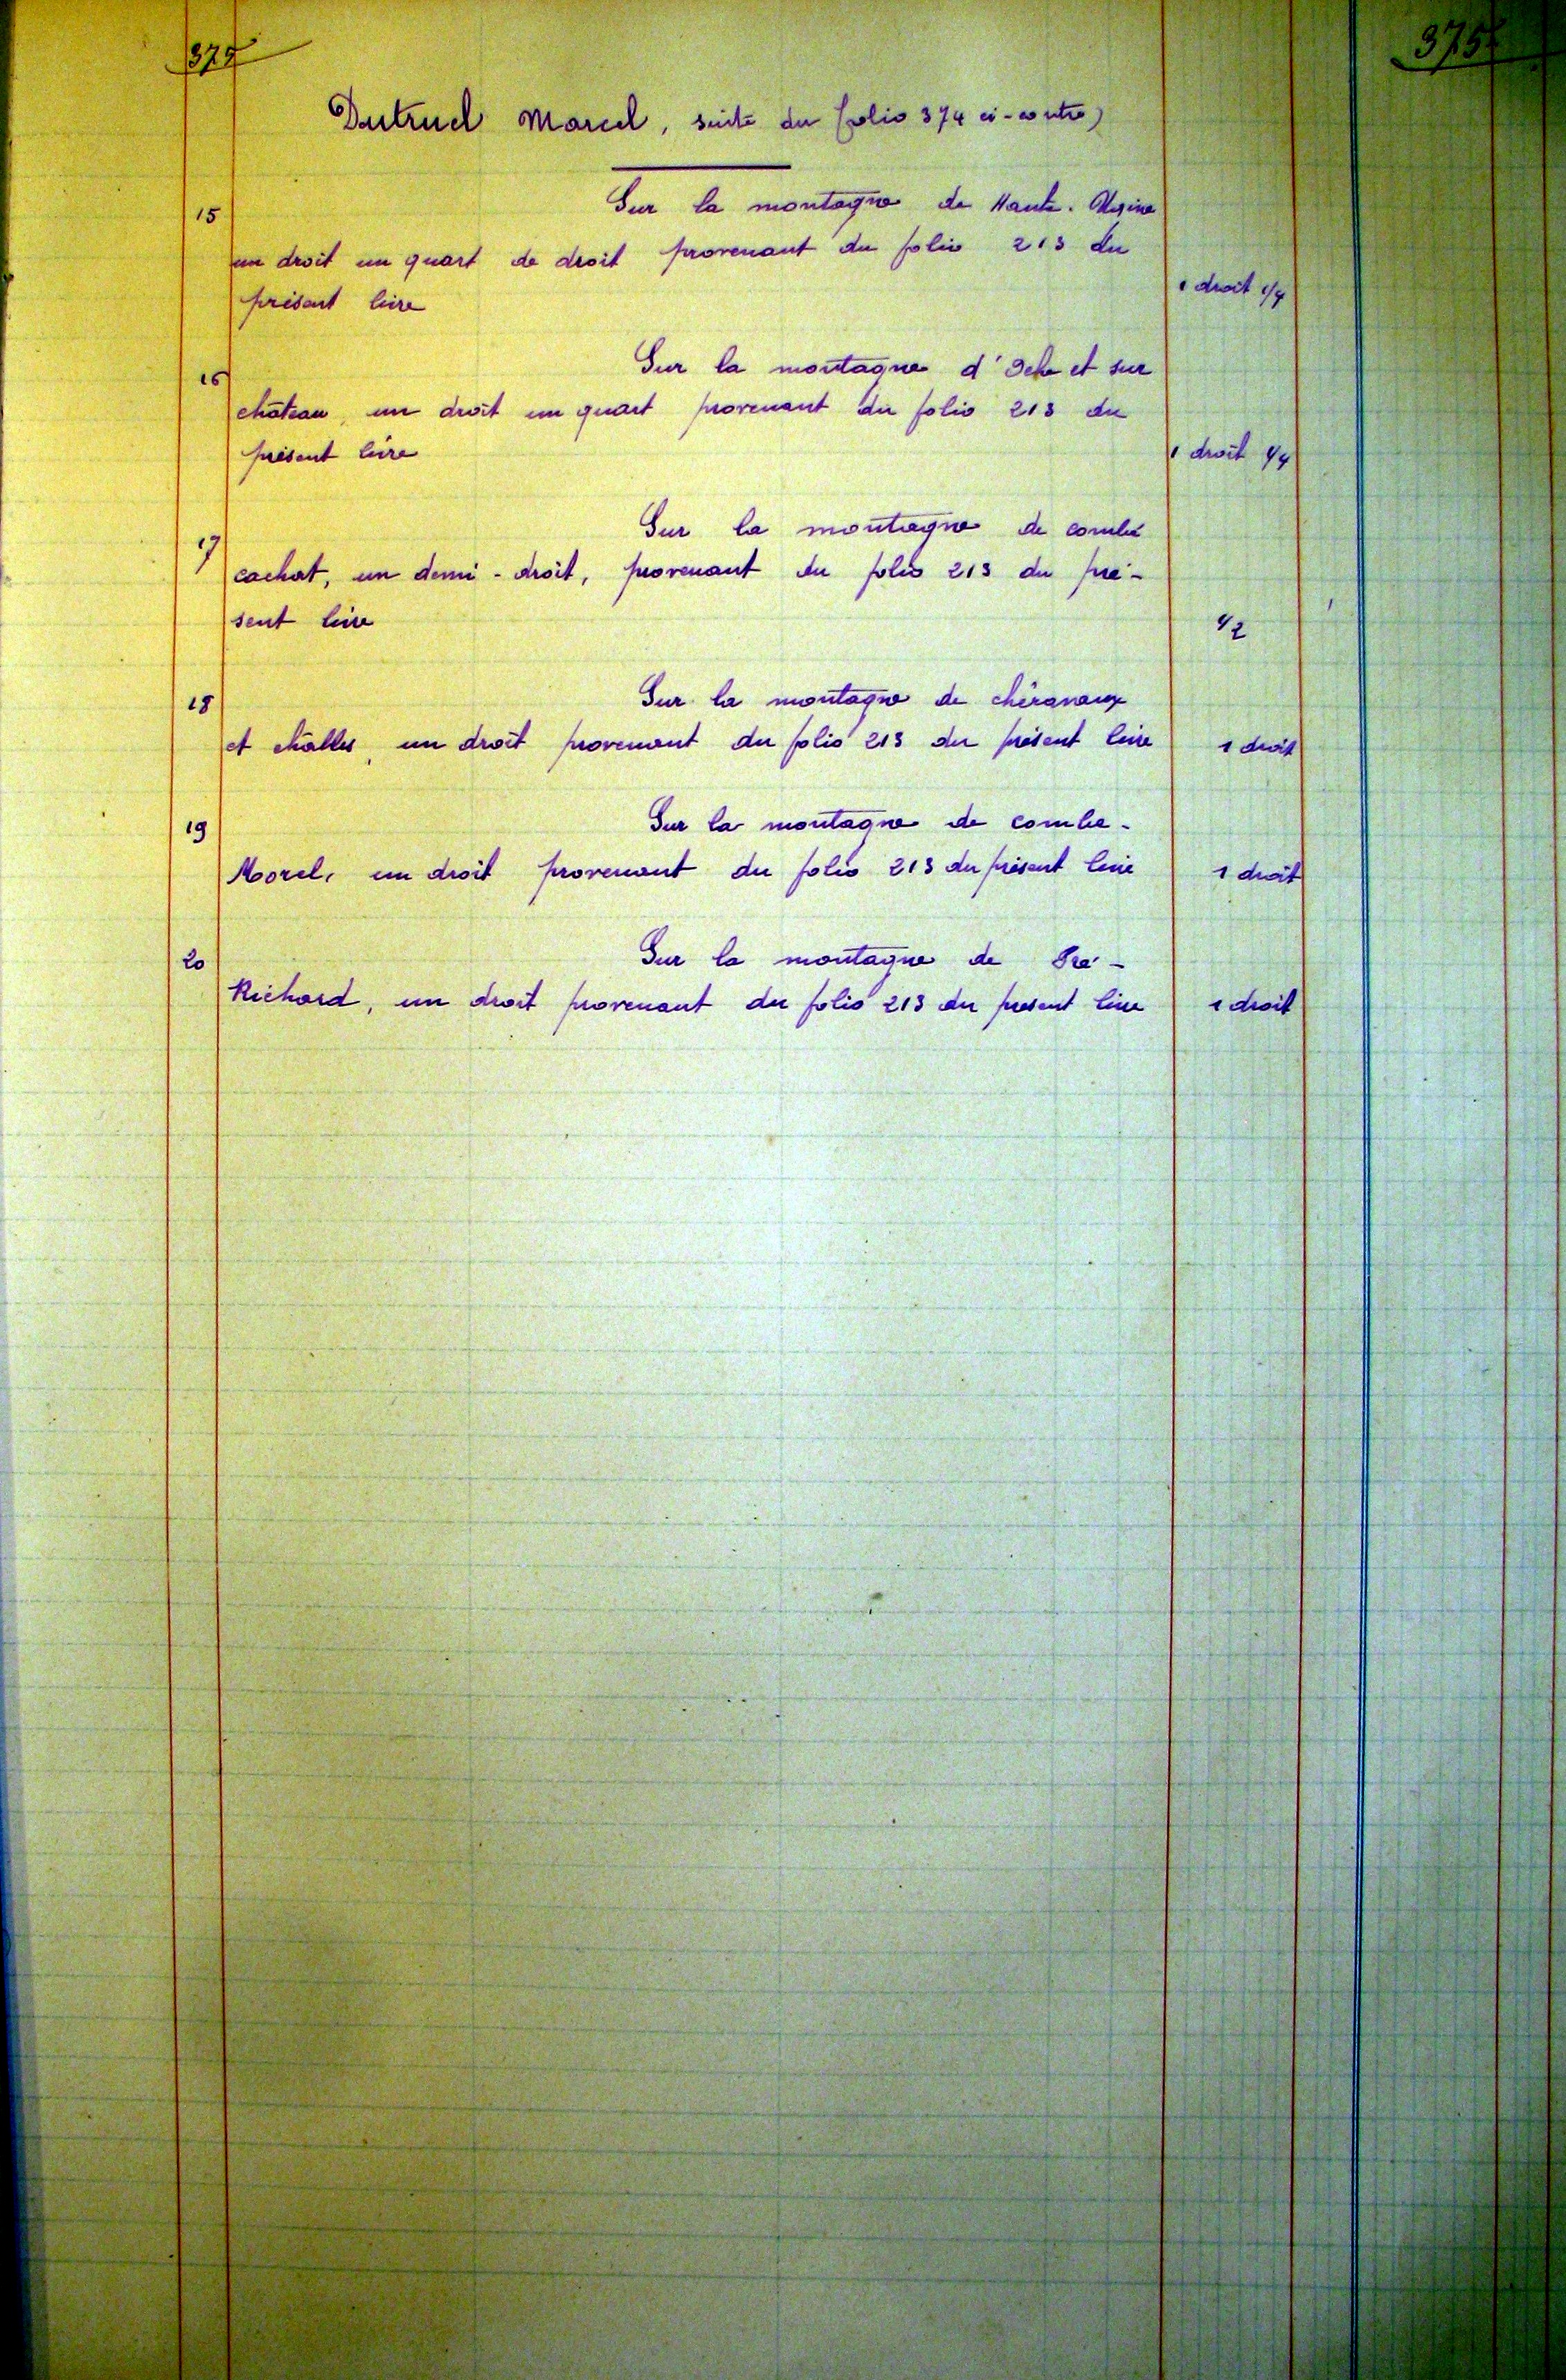 375
375
Dutruel Marcel, suite du folio 374 ci-contre)
15 Sur la montagne de Haute-Ugine
un droit un quart de droit provenant du folio 213 du
présent livre 1 droit 1/4
16 Sur la montagne d'Oche et sur
château, un droit un quart provenant du folio 213 du
présent livre 1 droit 1/4
17 Sur la montagne de combe
cachat, un demi-droit, provenant du folio 213 du pré-
sent livre 1/2
18 Sur la montagne de chéravaux
et challes, un droit provenant du folio 213 du présent livre 1 droit
19 Sur la montagne de combe-
Morel, un droit provenant du folio 213 du présent livre 1 droit
20 Sur la montagne de Pré-
Richard, un droit provenant du folio 213 du présent livre 1 droit